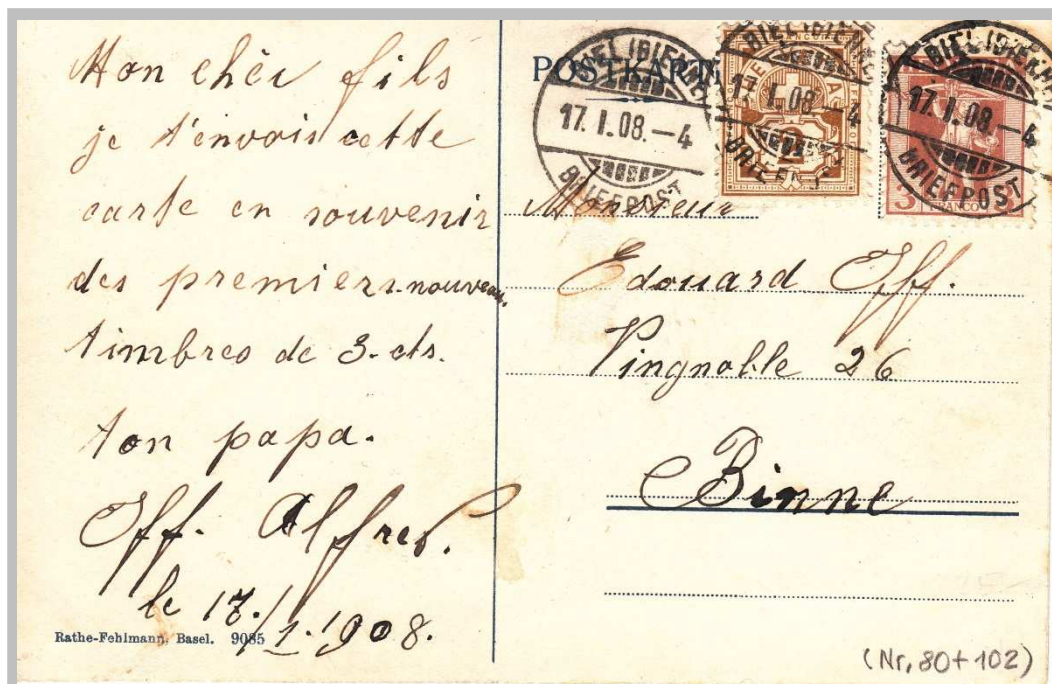 Mon chèr fils
je t'envois cette
carte en souvenir
des premiers nouveau.
timbres de 3. cts.
ton papa.
Iff. Alfred.
le 17./1.1908.
Rathe-Fehlmann, Basel. 9085
POSTKARTE
BIEL (BIENNE)
17. I. 08. – 4
BRIEFPOST
BIEL (BIENNE)
17. I. 08. – 4
BRIEFPOST
2
BIEL (BIENNE)
17. I. 08. – 4
BRIEFPOST
3
FRANCO
Monsieur
Edouard Iff.
Vingnoble 26
Binne
(Nr. 80 + 102)